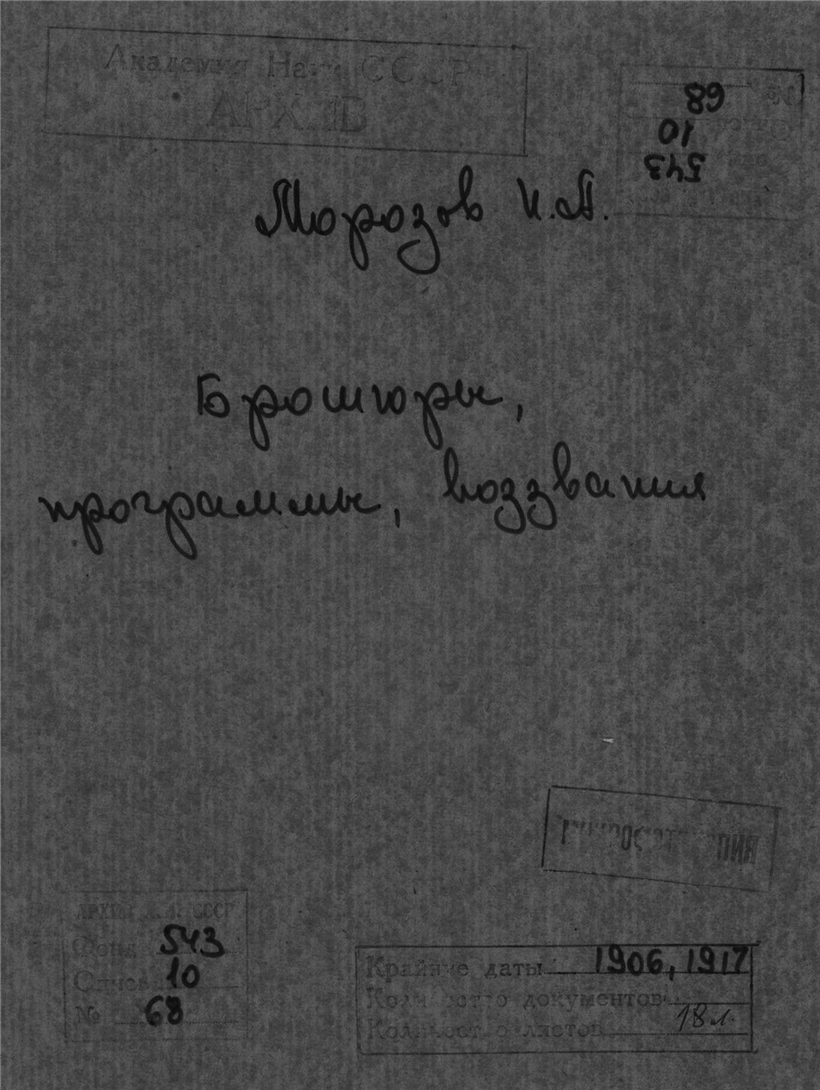 Академия Наук СССР
АРХИВ
№ 68
10
543
Морозов Н.А.
Брошюры,
программы, воззвания
АРХИВ А.Н. СССР
Фонд 543
Опись 10
№ 68
Крайние даты 1906, 1917
Количество документов
Количество листов 18 л.